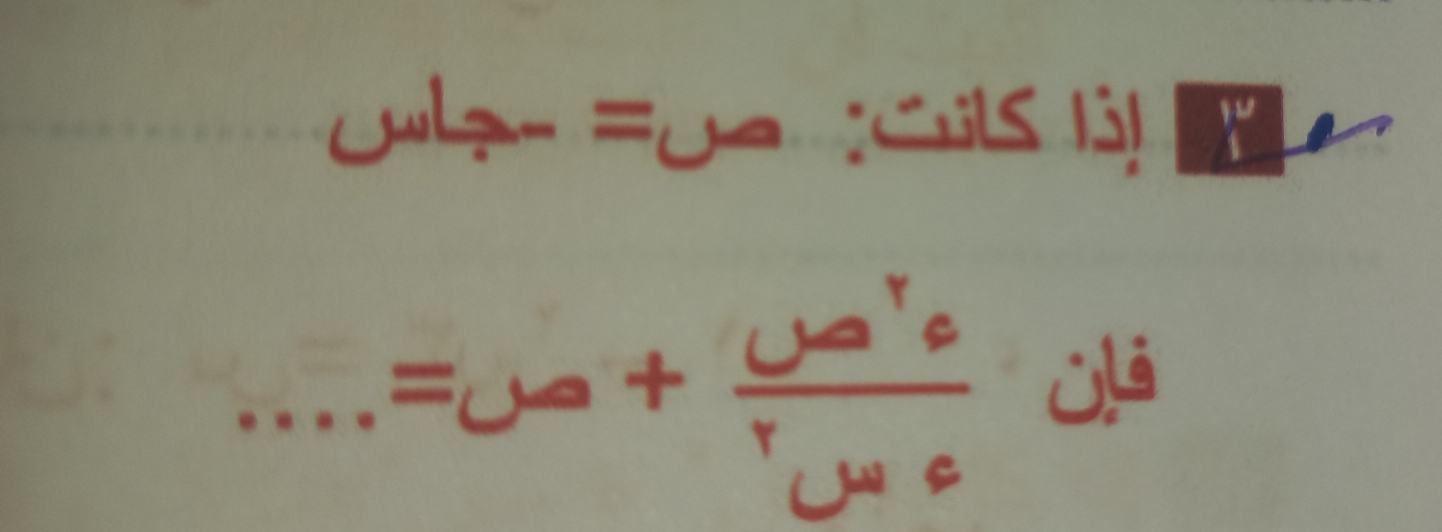 ٣ إذا كانت: ص= -جاس
فإن ء٢ص/ء س٢ + ص=....